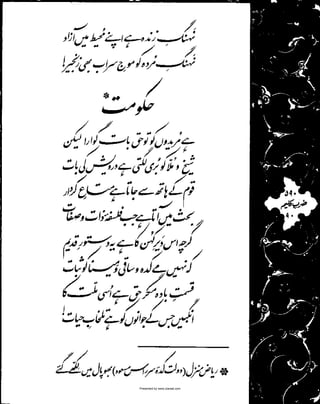 نہنگِ زندہ ہے اپنے محیط میں آزاد
نہنگِ مُردہ کو موجِ سراب بھی زنجیر!
حکومت*
ہے مُریدوں کو تو حق بات گوارا لیکن
شیخ و مُلّا کو بُری لگتی ہے درویش کی بات
قوم کے ہاتھ سے جاتا ہے متاعِ کردار
بحث میں آتا ہے جب فلسفۂ ذات و صفات
گرچہ اس دَیرِ کُہن کا ہے یہ دستورِ قدیم
کہ نہیں مے کدہ و ساقی و مینا کو ثبات
قسمتِ بادہ مگر حق ہے اُسی ملّت کا
انگبیں جس کے جوانوں کو ہے تلخابِ حیات!
* ریاض منزل (دولت کدۂ سر راس مسعود) بھوپال میں لکھے گئے
۵۹۰
ضربِ کلیم
۹۰